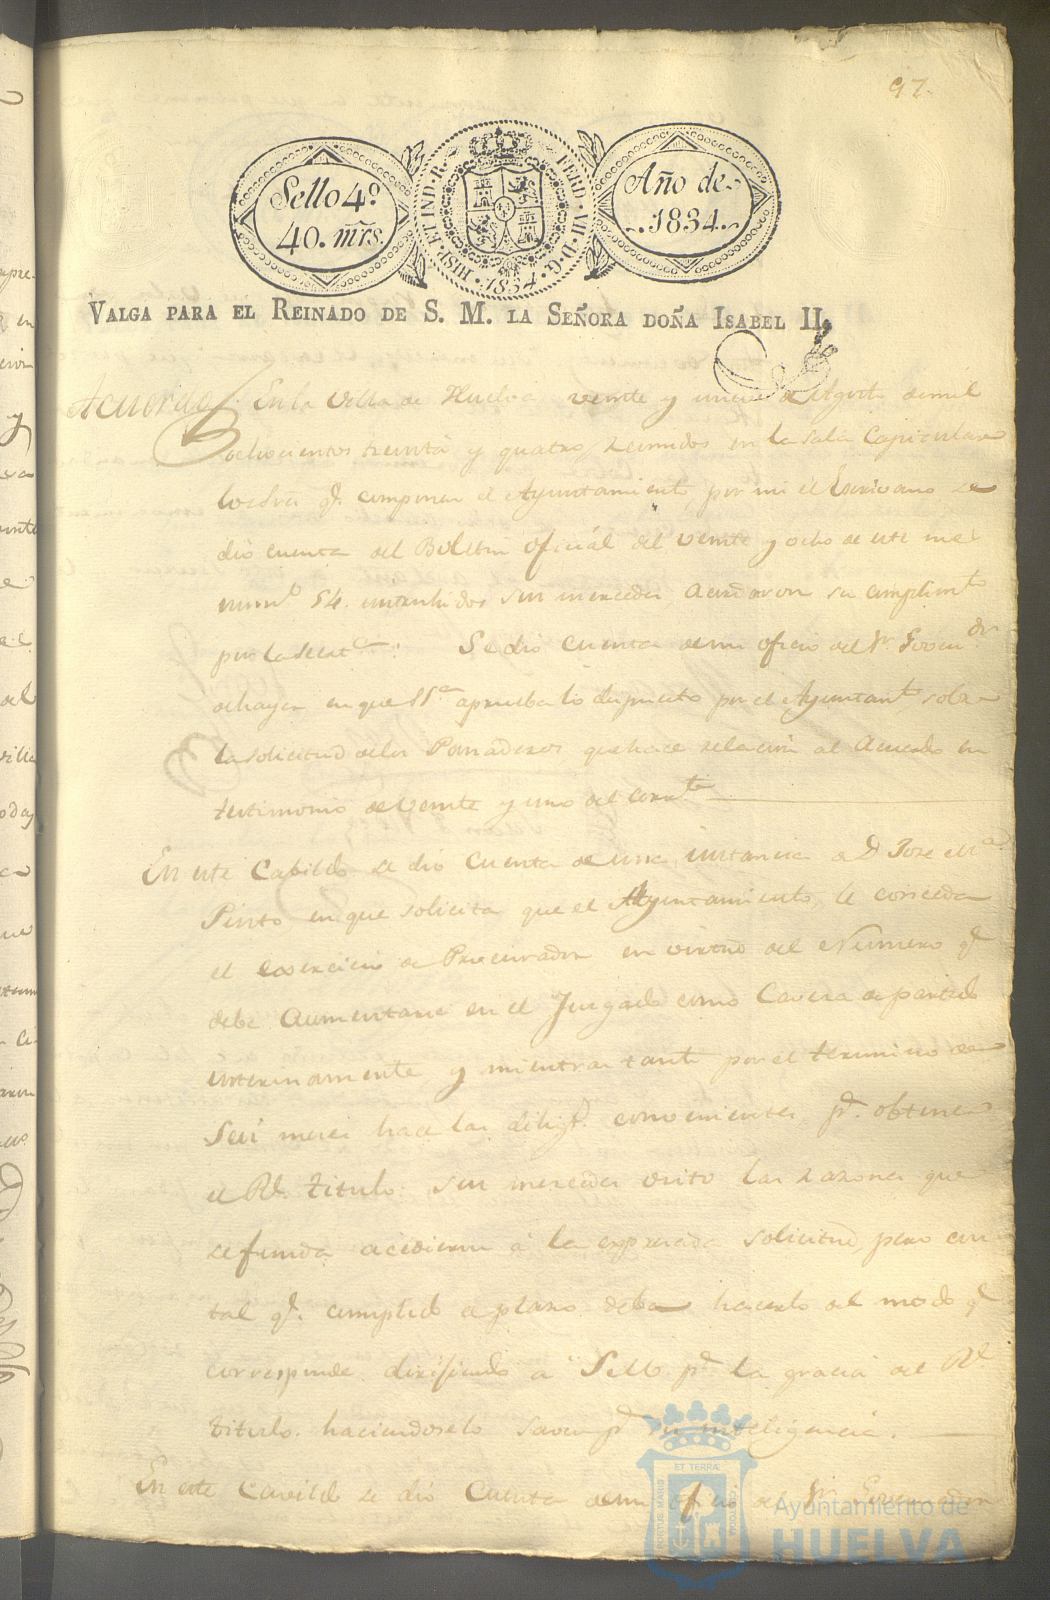 97.
Sello 4º.
40. mrs.
HISP. ET IND. R. FERD. VII. D. G. 1834.
Año de
1834.
VALGA PARA EL REINADO DE S. M. LA SEÑORA DOÑA ISABEL II.
Acuerdo En la Villa de Huelva veinte y nueve de Agosto de mil
ochocientos treinta y quatro, reunidos en la sala Capitular
los Sres q.e componen el Ayuntamiento, por mi el Escrivano se
dio cuenta del Boletin oficial del veinte y ocho de este mes
num.o 54. entendidos sus mercedes, acordaron su cumplim.to
por la Secret.a: Se dio cuenta de un oficio del Sr. Governdor
en que SS.a aprueba lo dispuesto por el Ayuntam.to sobre
la solicitud de los Panaderos, que hace relacion al Acuerdo en
testimonio de veinte y uno del corr.te
En este Cabildo se dio cuenta de una instancia de D. Jose M.a
Pinto en que solicita que el Ayuntamiento, le conceda
el exercicio de Procurador en virtud del Numero q.e
debe aumentarse en el Juzgado como Cavera de partido
interinamente, y mientras tanto por el termino de
seis meses hace las dilig.s convenientes p.a obtener
el Rl. titulo: sus mercedes visto las razones que
se funda accedieron á la expresada solicitud, pero con
tal q.e cumplido el plazo deba hacerlo del modo q.e
corresponde dirijiendo á S. M. p.a la gracia del Rl.
titulo. haciendoselo saver p.a su inteligencia.
En este Cavildo se dio Cuenta de un oficio del Sr. Governador
PORTUS MARIS ET TERRÆ CUSTODIA
Ayuntamiento de
HUELVA